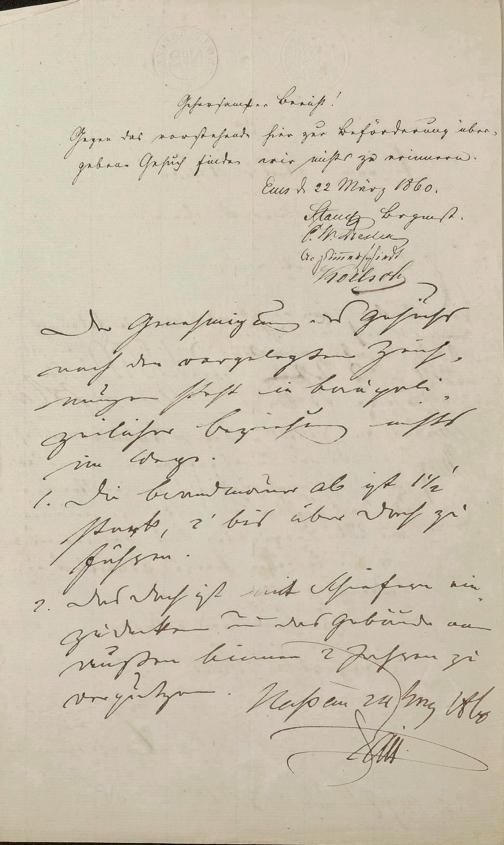 Gehorsamster Bericht!
Gegen das vorstehende hier zur Beförderung über-
gebene Gesuch finden wir nichts zu erinnern.
Ems d. 22 März 1860.
Stamp Brgmst.
C. W.
Der Genehmigung des Gesuchs
nach den vorgelegten Zeich-
nungen steht in baupoli-
zeilicher Beziehung nichts
im Wege.
1. Die Brandmauer ab ist 1½'
stark, 2' bis über Dach zu
führen.
2. Das Dach ist mit Schiefern ein-
zudecken u das Gebäude von
außen binnen 2 Jahren zu
verputzen.
Nassau 24 1860